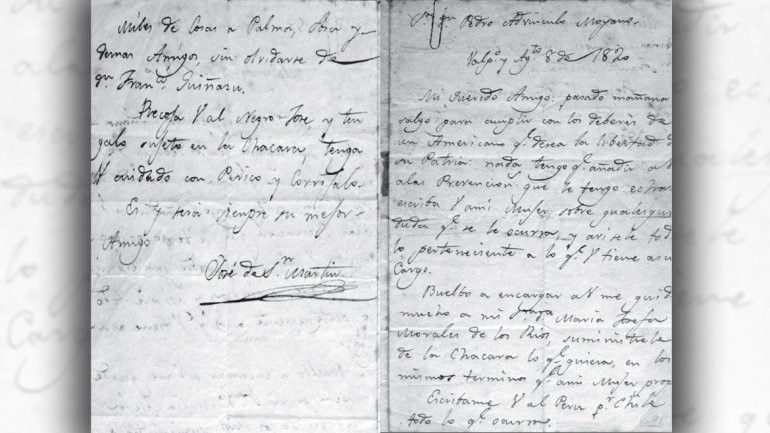 Sor Dn Pedro Advinculo Moyano
Valpo y Agto 8 de 1820
Mi Querido Amigo: pasado mañana
salgo para cumplir con los deberes de
un Americano q.e desea la libertad d
su Patria: nada tengo q.e añadir a
a las Prevencions que le tengo echas
escriba V a mi Muger sobre qualesqui
duda q.e se le ocurra, y avisele tod
lo perteneciente a lo q.e V tiene a su
Cargo.
Buelbo a encargar a V me quid
mucho a mi D.a Maria Josefa
Morales de los Rios, suministrele
de la Chacara lo q.e quiera, en los
mismos terminos q.e a mi Muger prop
Escribame V al Peru p.r Chile
todo lo q.e ocurra.
Miles de cosas a Palma, Sosa y
demas Amigos, sin olvidarse de
Dn Franco
Recoja V al Negro Jose, y ten
galo sujeto en la Chacara, tenga
V cuidado con Perico y Corrisalo.
Es y será siempre su mejor
Amigo
José de Sn Martin